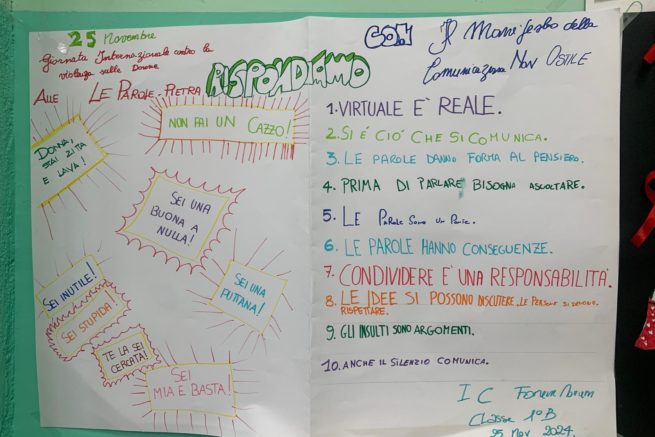 25 Novembre
Giornata Internazionale contro la
violenza sulle Donne
ALLE LE PAROLE-PIETRA
RISPONDIAMO
NON FAI UN CAZZO!
DONNA,
STAI ZITTA
E LAVA!
SEI UNA
BUONA A
NULLA!
SEI UNA
PUTTANA!
SEI INUTILE!
SEI STUPIDA!
TE LA SEI
CERCATA!
SEI
MIA E BASTA!
CON Il Manifesto della
Comunicazione Non OSTILE
1. VIRTUALE E' REALE.
2. SI È CIÒ CHE SI COMUNICA.
3. LE PAROLE DANNO FORMA AL PENSIERO.
4. PRIMA DI PARLARE BISOGNA ASCOLTARE.
5. LE PaRole Sono Un Ponte.
6. LE PAROLE HANNO CONSEGUENZE.
7. CONDIVIDERE E' UNA RESPONSABILITÀ.
8. LE IDEE SI POSSONO DISCUTERE, LE PERSONE SI DEVONO
RISPETTARE.
9. GLI INSULTI SONO ARGOMENTI.
10. ANCHE IL SILENZIO COMUNICA.
IC
Classe 1°B
25 Nov 2024.